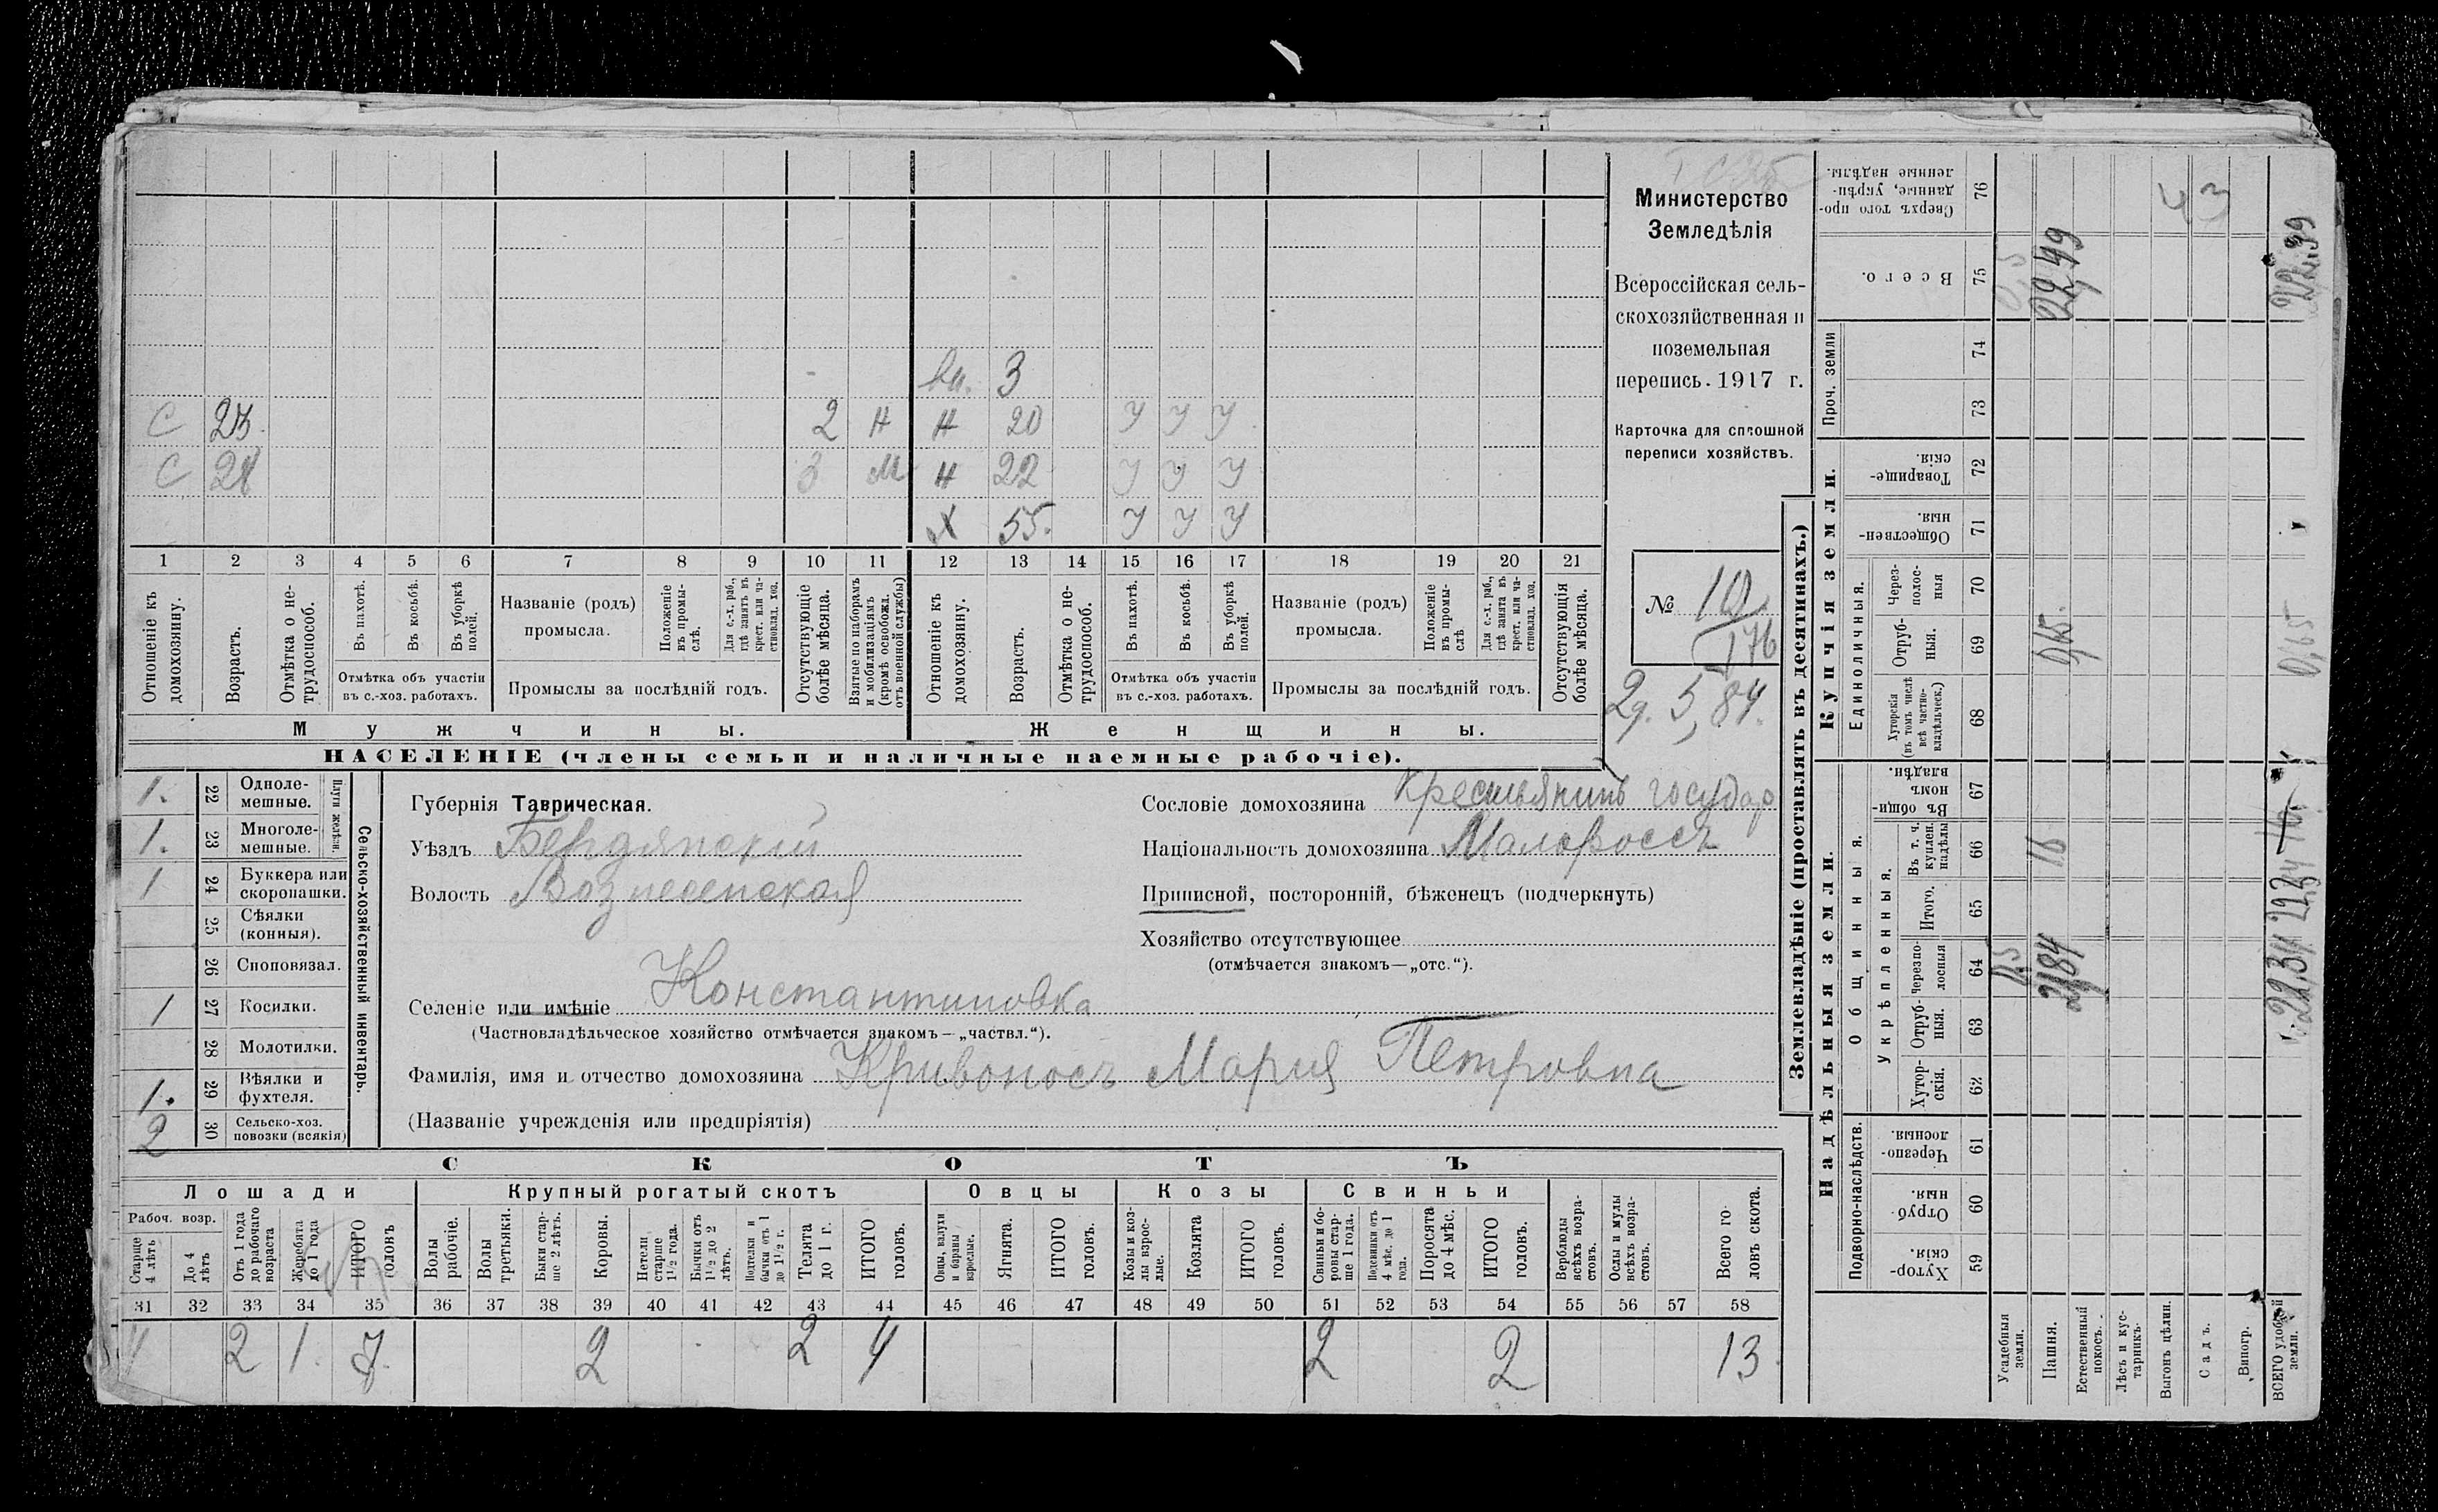 Министерство
Земледѣлія
Всероссійская сель-
скохозяйственная и
поземельная
перепись 1917 г.
Карточка для сплошной
переписи хозяйствъ.
№ 10
176
2д. 5,84.
вн. 3
С 23 2 Н Н 20 У У У
С 28 3 М Н 22 У У У
Х 55. У У У
1 2 3 4 5 6 7 8 9 10 11 12 13 14 15 16 17 18 19 20 21
Отношеніе къ домохозяину.
Возрастъ.
Отмѣтка о не-трудоспособ.
Въ пахотѣ.
Въ косьбѣ.
Въ уборкѣ полей.
Отмѣтка объ участіи въ с.-хоз. работахъ.
Названіе (родъ) промысла.
Положеніе въ промы-слѣ.
Для с.-х. раб., гдѣ занятъ въ крест. или ча-стновлад. хоз.
Промыслы за послѣдній годъ.
Отсутствующіе болѣе мѣсяца.
Взятые по наборамъ и мобилизаціямъ (кромѣ освобожд. отъ военной службы)
Отношеніе къ домохозяину.
Возрастъ.
Отмѣтка о не-трудоспособ.
Въ пахотѣ.
Въ косьбѣ.
Въ уборкѣ полей.
Отмѣтка объ участіи въ с.-хоз. работахъ.
Названіе (родъ) промысла.
Положеніе въ промы-слѣ
Для с.-х. раб., гдѣ занята въ крест. или ча-стновлад. хоз.
Промыслы за послѣдній годъ.
Отсутствующія болѣе мѣсяца.
Мужчины. Женщины.
НАСЕЛЕНІЕ (члены семьи и наличные наемные рабочіе).
Сельско-хозяйственный инвентарь.
Плуги желѣзн.
1. 22 Одноле-мешные.
1. 23 Многоле-мешные.
1 24 Буккера или скоропашки.
25 Сѣялки (конныя).
26 Сноповязал.
1 27 Косилки.
28 Молотилки.
1. 29 Вѣялки и фухтеля.
2 30 Сельско-хоз. повозки (всякія)
Губернія Таврическая.
Уѣздъ Бердянскій
Волость Вознесенская
Сословіе домохозяина Крестьянинъ государ
Національность домохозяина Малороссъ
Приписной, посторонній, бѣженецъ (подчеркнуть)
Хозяйство отсутствующее
(отмѣчается знакомъ—„отс.“).
Селеніе или имѣніе Константиновка
(Частновладѣльческое хозяйство отмѣчается знакомъ—„частвл.“).
Фамилія, имя и отчество домохозяина Кривоносъ Мария Петровна
(Названіе учрежденія или предпріятія)
СКОТЪ
Лошади Крупный рогатый скотъ Овцы Козы Свиньи
Рабоч. возр.
Старше 4 лѣтъ
До 4 лѣтъ
Отъ 1 года до рабочаго возраста
Жеребята до 1 года
ИТОГО головъ
Волы рабочіе.
Волы третьяки.
Быки стар-ше 2 лѣтъ.
Коровы.
Нетели старше 1½ года.
Бычки отъ 1½ до 2 лѣтъ.
Подтелки и бычки отъ 1 до 1½ г.
Телята до 1 г.
ИТОГО головъ.
Овцы, валухи и бараны взрослые.
Ягнята.
ИТОГО головъ.
Козы и коз-лы взрос-лые.
Козлята
ИТОГО головъ.
Свиньи и бо-ровы стар-ше 1 года.
Подсвинки отъ 4 мѣс. до 1 года.
Поросята до 4 мѣс.
ИТОГО головъ.
Верблюды всѣхъ возра-стовъ.
Ослы и мулы всѣхъ возра-стовъ.
Всего го-ловъ скота.
31 32 33 34 35 36 37 38 39 40 41 42 43 44 45 46 47 48 49 50 51 52 53 54 55 56 57 58
4 2 1. 7. 2 2 4 2 2 13
Землевладѣніе (проставлять въ десятинахъ.)
Надѣльныя земли. Купчія земли.
Подворно-наслѣдств.
Общинныя.
Укрѣпленныя.
Единоличныя.
Проч. земли
59 Хутор-скія.
60 Отруб-ныя.
61 Черезпо-лосныя.
62 Хутор-скія.
63 Отруб-ныя.
64 Черезпо-лосныя
65 Итого.
66 Въ т. ч. куплен. надѣлы
67 Въ общи-номъ владѣн.
68 Хуторскія (въ томъ числѣ всѣ частно-владѣльческ.)
69 Отруб-ныя.
70 Через-полос-ныя
71 Обществен-ныя.
72 Товарище-скія.
73
74
75 Всего.
76 Сверхъ того про-данные, укрѣп-ленные надѣлы.
Усадебныя земли. 0,5 0,5
Пашня. 2184 16 0,65. 22,49
Естественный покосъ.
Лѣсъ и кус-тарникъ.
Выгонъ цѣлин.
Садъ.
Виногр.
ВСЕГО удобной земли. 22.34 16. 0,65 22.99